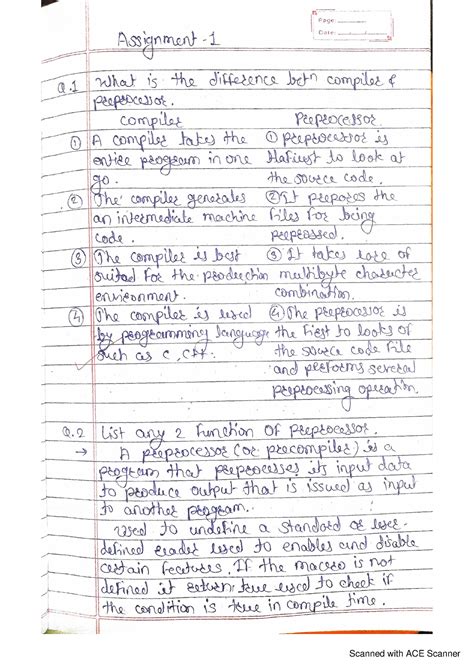 Page:
Date:
Assignment - 1
Q.1 What is the difference betn compiler &
preprocessor.
Compiler Preprocessor
① A compiler takes the ① preprocessor is
entire program in one to look at
go. the source code.
② The compiler generates ② It prepares the
an intermediate machine files for being
code.
③ The compiler is best ③ It takes care of
suited for the production multibyte character
environment. combination.
④ The compiler is used ④ The preprocessor is
by programming language the first to looks of
such as C, C++. the source code file
and performs several
preprocessing operation.
Q.2 List any 2 function of preprocessor.
→ A preprocessor (or precompiler) is a
program that preprocesses its input data
to produce output that is issued as input
to another program.
Used to undefine a standard or user-
defined used to enables and disable
certain features. If the macro is not
defined it return true used to check if
the condition is true in compile time.
Scanned with ACE Scanner